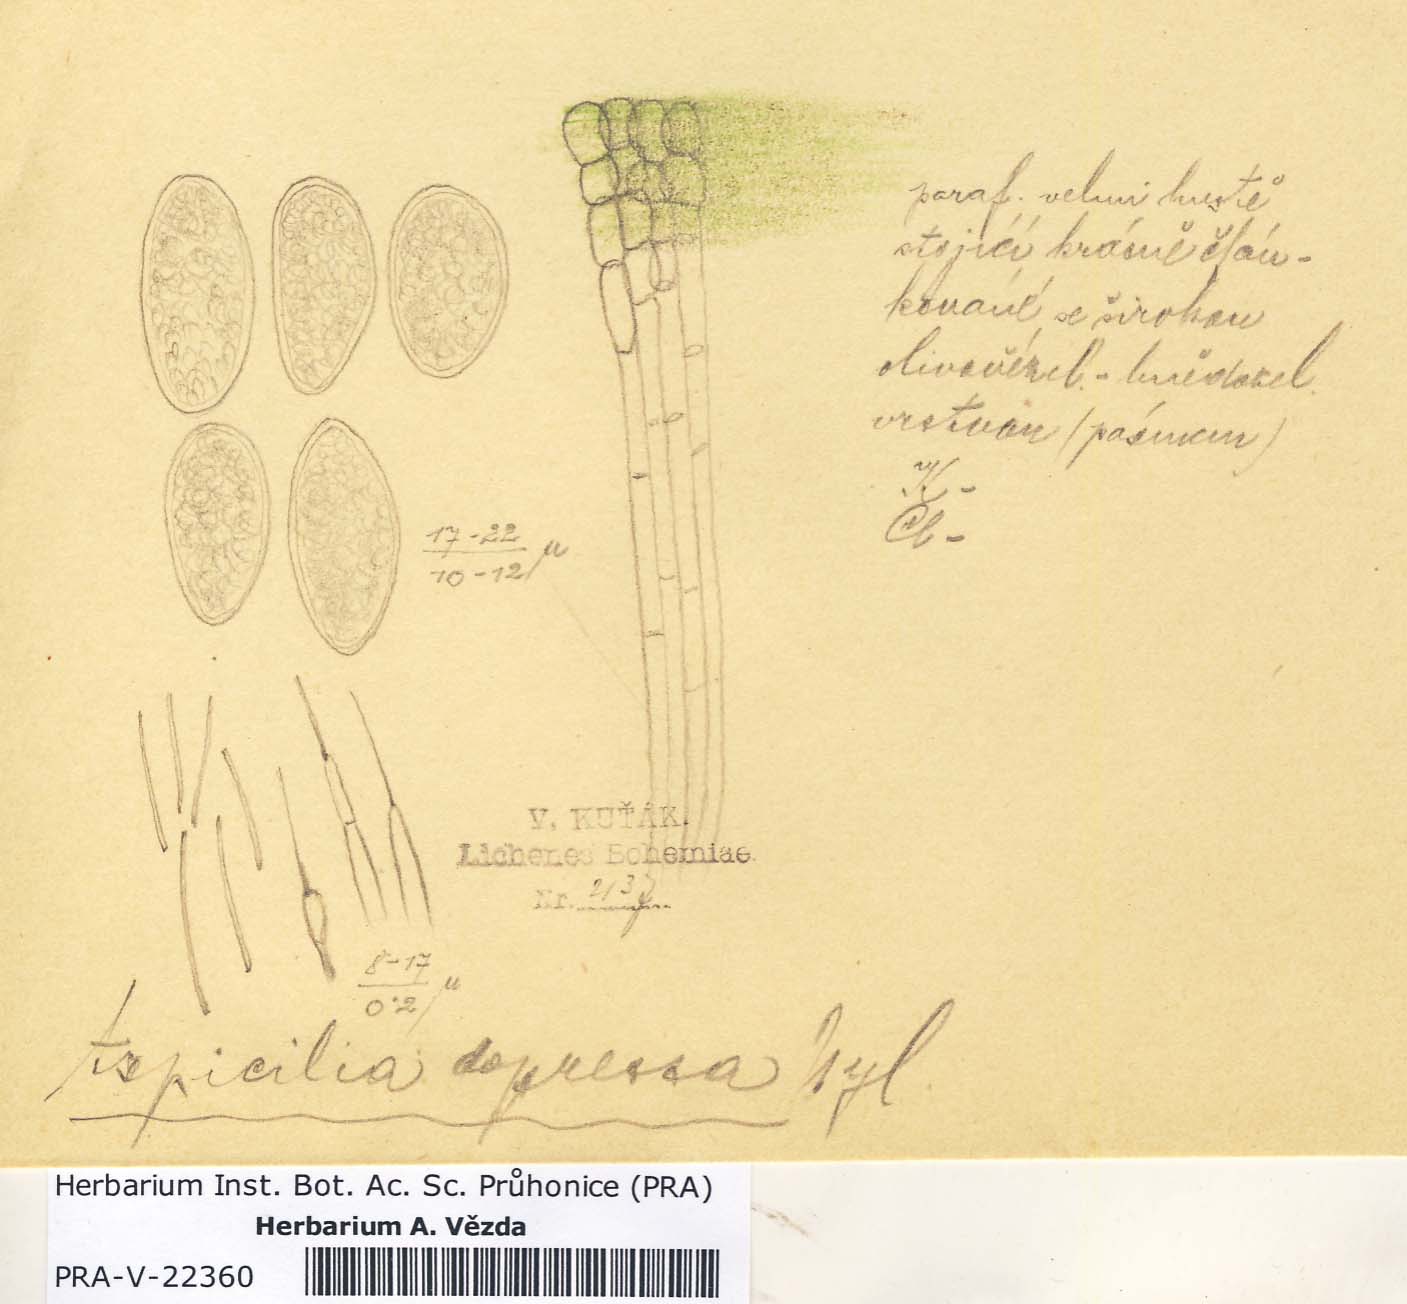 paraf. velmi hustě
stojící krásně člán-
kované se širokou
olivověžel. - hnědozel.
vrstvou (pásmem)
K -
Cl -
17-22
10-12 μ
V. KUŤÁK.
Lichenes Bohemiae.
Nr.
8-17
0·2 μ
Aspicilia depressa Nyl.
Herbarium Inst. Bot. Ac. Sc. Průhonice (PRA)
Herbarium A. Vězda
PRA-V-22360